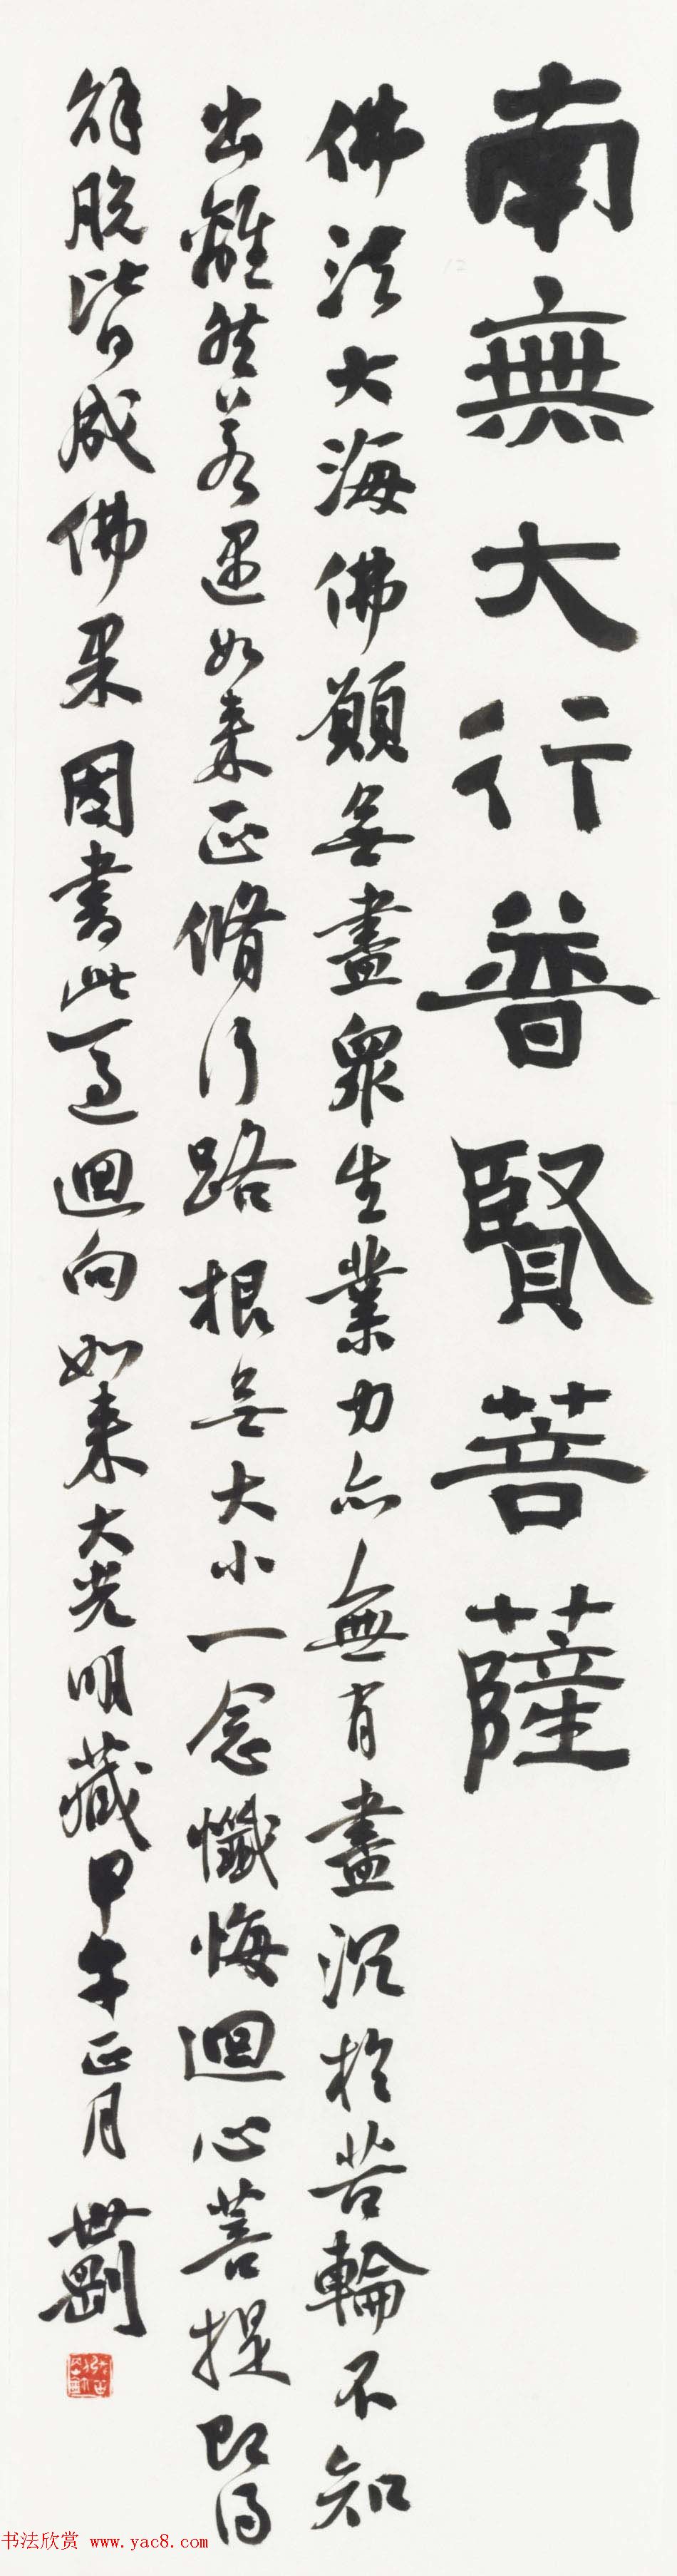 南無大行普賢菩薩
佛法大海佛願無盡眾生業力亦無有盡沉於苦輪不知
出離然若遇如來正脩行路根無大小一念懺悔迴心菩提即得
解脫皆成佛果因書此一過迴向如来大光明藏甲午正月世剛
书法欣赏 www.yac8.com